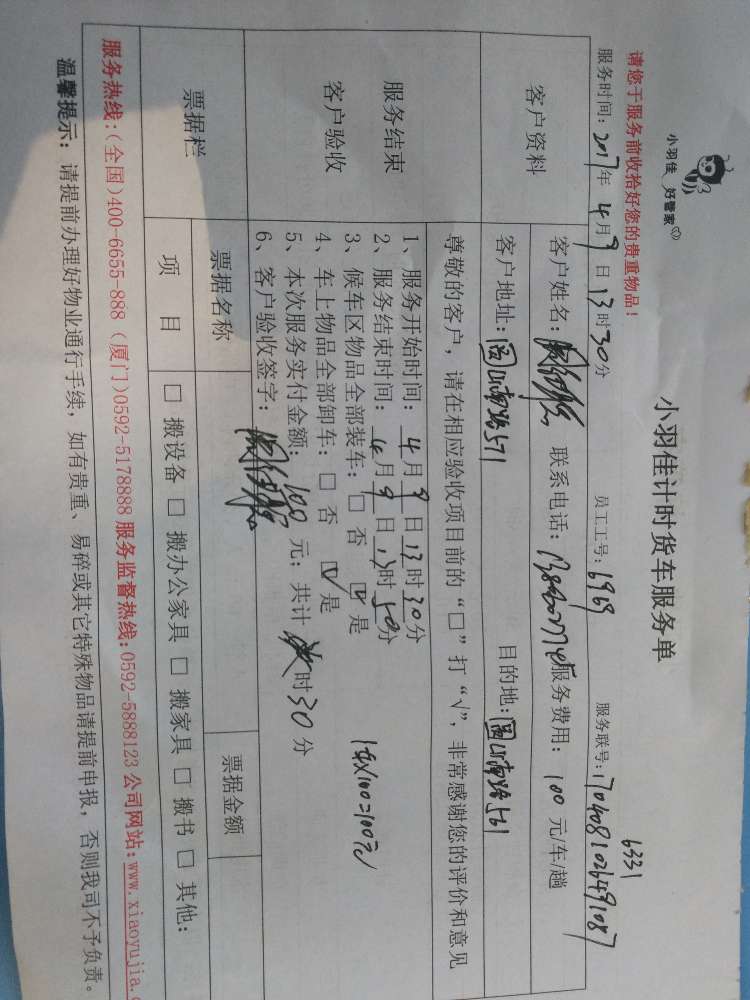 小羽佳 好管家
小羽佳计时货车服务单
请您于服务前收拾好您的贵重物品！
6331
服务时间：2017年 4月9日13时30分 员工工号：6969 服务联号：
客户资料
客户姓名： 联系电话： 服务费用：100元/车/趟
客户地址： 目的地：
服务结束
客户验收
尊敬的客户，请在相应验收项目前的“□”打“√”，非常感谢您的评价和意见
1、服务开始时间：4月9日13时30分
2、服务结束时间：4月9日13时50分
3、候车区物品全部装车：□ 否 ☑ 是
4、车上物品全部卸车：□ 否 ☑ 是
5、本次服务实付金额：100元；共计 时30分
1车X100=100元
6、客户验收签字：
票据栏
票据名称 票据金额
项 目 □ 搬设备 □ 搬办公家具 □ 搬家具 □ 搬书 □ 其他：
服务热线：(全国)400-6655-888 (厦门)0592-5178888 服务监督热线：0592-5888123 公司网站：www.xiaoyujia.c
温馨提示：请提前办理好物业通行手续，如有贵重、易碎或其它特殊物品请提前申报，否则我司不予负责。